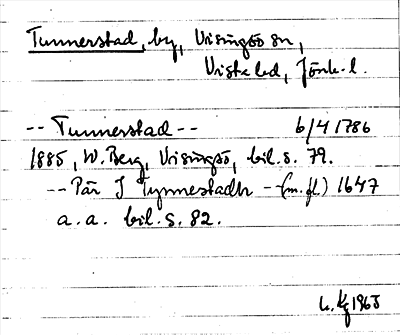 Tunnerstad, by, Visingsö sn,
Vista hd, Jönk. l.
-- Tunnerstad -- 6/4 1786
1885, W. Berg, Visingsö, bil. s. 79.
-- Pär J Tynnestadh -- (m. fl.) 1647
a. a. bil. s. 82.
1965